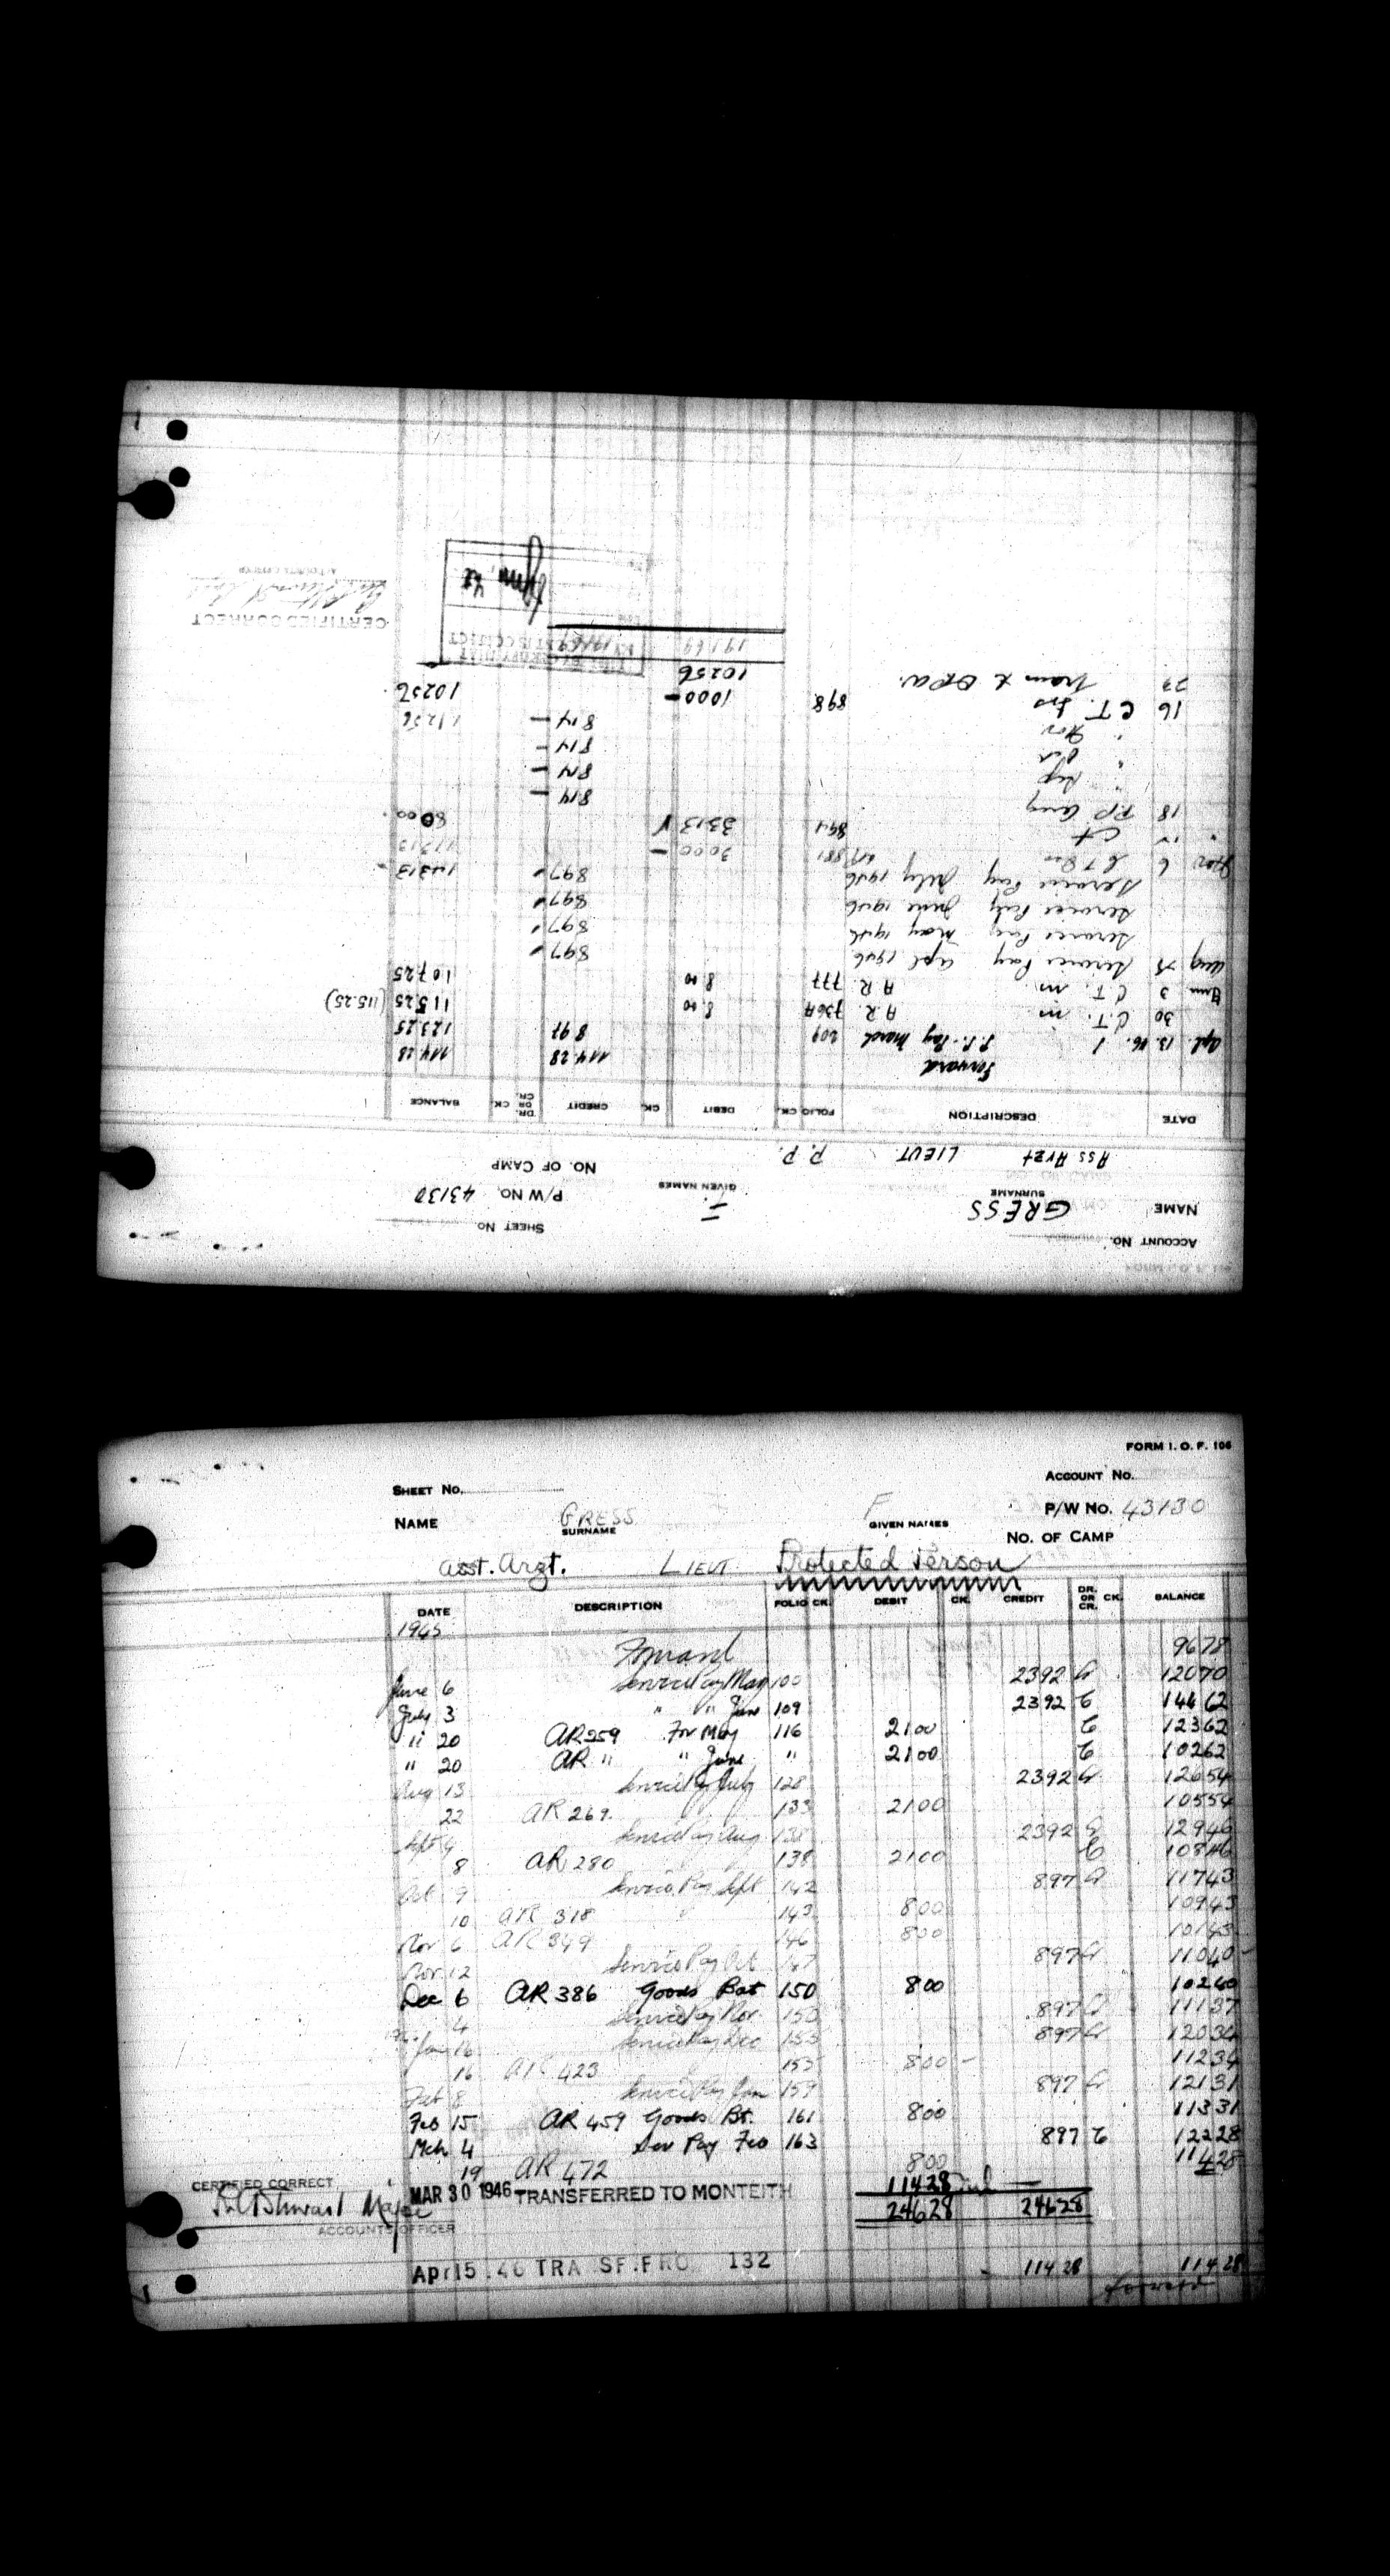 FORM I. O. F. 106
ACCOUNT No.
NAME GRESS F. SHEET No.
SURNAME GIVEN NAMES P/W No. 43130
Ass Arzt LIEUT P.P. NO. OF CAMP
DATE DESCRIPTION FOLIO CK. DEBIT CK. CREDIT DR. OR CR. CK. BALANCE
Forward 114.28 114.28
Apl. 13.46. P.P. Pay March 209 8.97 123.25
30 C.T. m A.R. 736A 8.00 115.25 (115.25)
3 C.T. m A.R. 777 8.00 107.25
Aug Service Pay Apl 1946 897
Service Pay May 1946 897
Service Pay June 1946 897
Service Pay July 1946 897 14313
Nov 6 C T 881 3000 11313
" CT 894 3313 8000
18 P.P. Aug 814
" Sep 814
" Oct 814
" Nov 814 11256
16 C.T. 898 1000 10256
10256
19169 19169
CERTIFIED CORRECT
ACCOUNTS OFFICER
FORM I. O. F. 106
SHEET No. ACCOUNT No.
NAME GRESS F P/W No. 43130
SURNAME GIVEN NAMES No. OF CAMP
Asst. Arzt. LIEUT Protected Person
DATE DESCRIPTION FOLIO CK. DEBIT CK. CREDIT DR. OR CR. CK. BALANCE
1945
Forward 9678
June 6 Service Pay May 100 2392 Cr 12070
July 3 " " June 109 2392 Cr 14462
" 20 AR 259 For May 116 2100 Cr 12362
" 20 AR " " June " 2100 Cr 10262
Aug 13 Service Pay July 128 2392 Cr 12654
22 AR 269. 133 2100 10554
Sept 4 Service Pay Aug 138 2392 Cr 12946
8 AR 280 138 2100 Cr 10846
Oct 9 Service Pay Sept 142 897 Cr 11743
10 AR 318 143 800 10943
Nov 6 AR 349 146 800 10143
Nov 12 Service Pay Oct 147 897 Cr 11040
Dec 6 AR 386 Goods Bot 150 800 10240
4 Service Pay Nov. 150 897 Cr 11137
Jan 16 Service Pay Dec 153 897 Cr 12034
16 AR 423 153 800 11234
Feb 8 Service Pay Jan 159 897 Cr 12131
Feb 15 AR 459 Goods Bt. 161 800 11331
Mch 4 Ser Pay Feb 163 897 Cr 12228
19 AR 472 800 11428
CERTIFIED CORRECT
MAR 30 1946 TRANSFERRED TO MONTEITH 11428
Major 24628 24628
ACCOUNTS OFFICER
Apr 15.46 TRA SF.FRO 132 114 28 114 28
forward